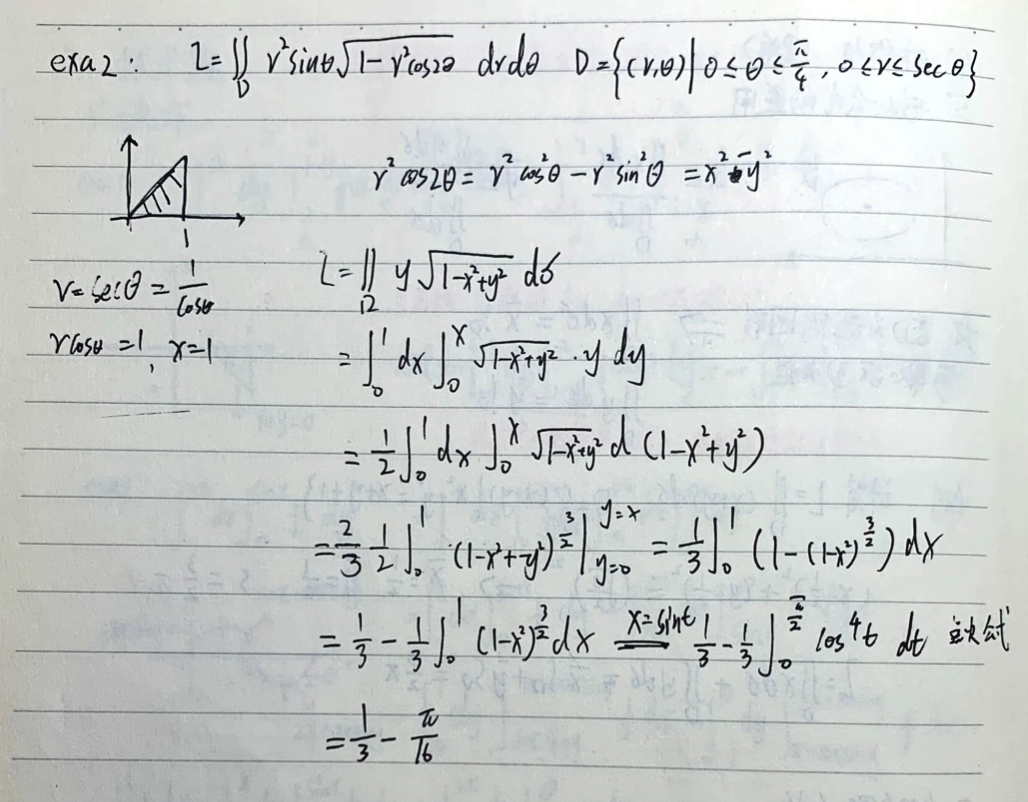 exa2: I=∬_D r²sinθ√(1-r²cos2θ) drdθ D={(r,θ)|0≤θ≤π/4, 0≤r≤secθ}
r²cos2θ=r²cos²θ-r²sin²θ=x²-y²
1
r=secθ=1/cosθ
rcosθ=1, x=1
I=∬_D y√(1-x²+y²) dσ
=∫_0^1 dx∫_0^x √(1-x²+y²)·y dy
=1/2∫_0^1 dx∫_0^x √(1-x²+y²) d(1-x²+y²)
=2/3 1/2∫_0^1 (1-x²+y²)^(3/2)|_(y=0)^(y=x) =1/3∫_0^1 (1-(1-x²)^(3/2))dx
=1/3-1/3∫_0^1 (1-x²)^(3/2)dx x=sint 1/3-1/3∫_0^(π/2) cos⁴t dt 公式
=1/3-π/16